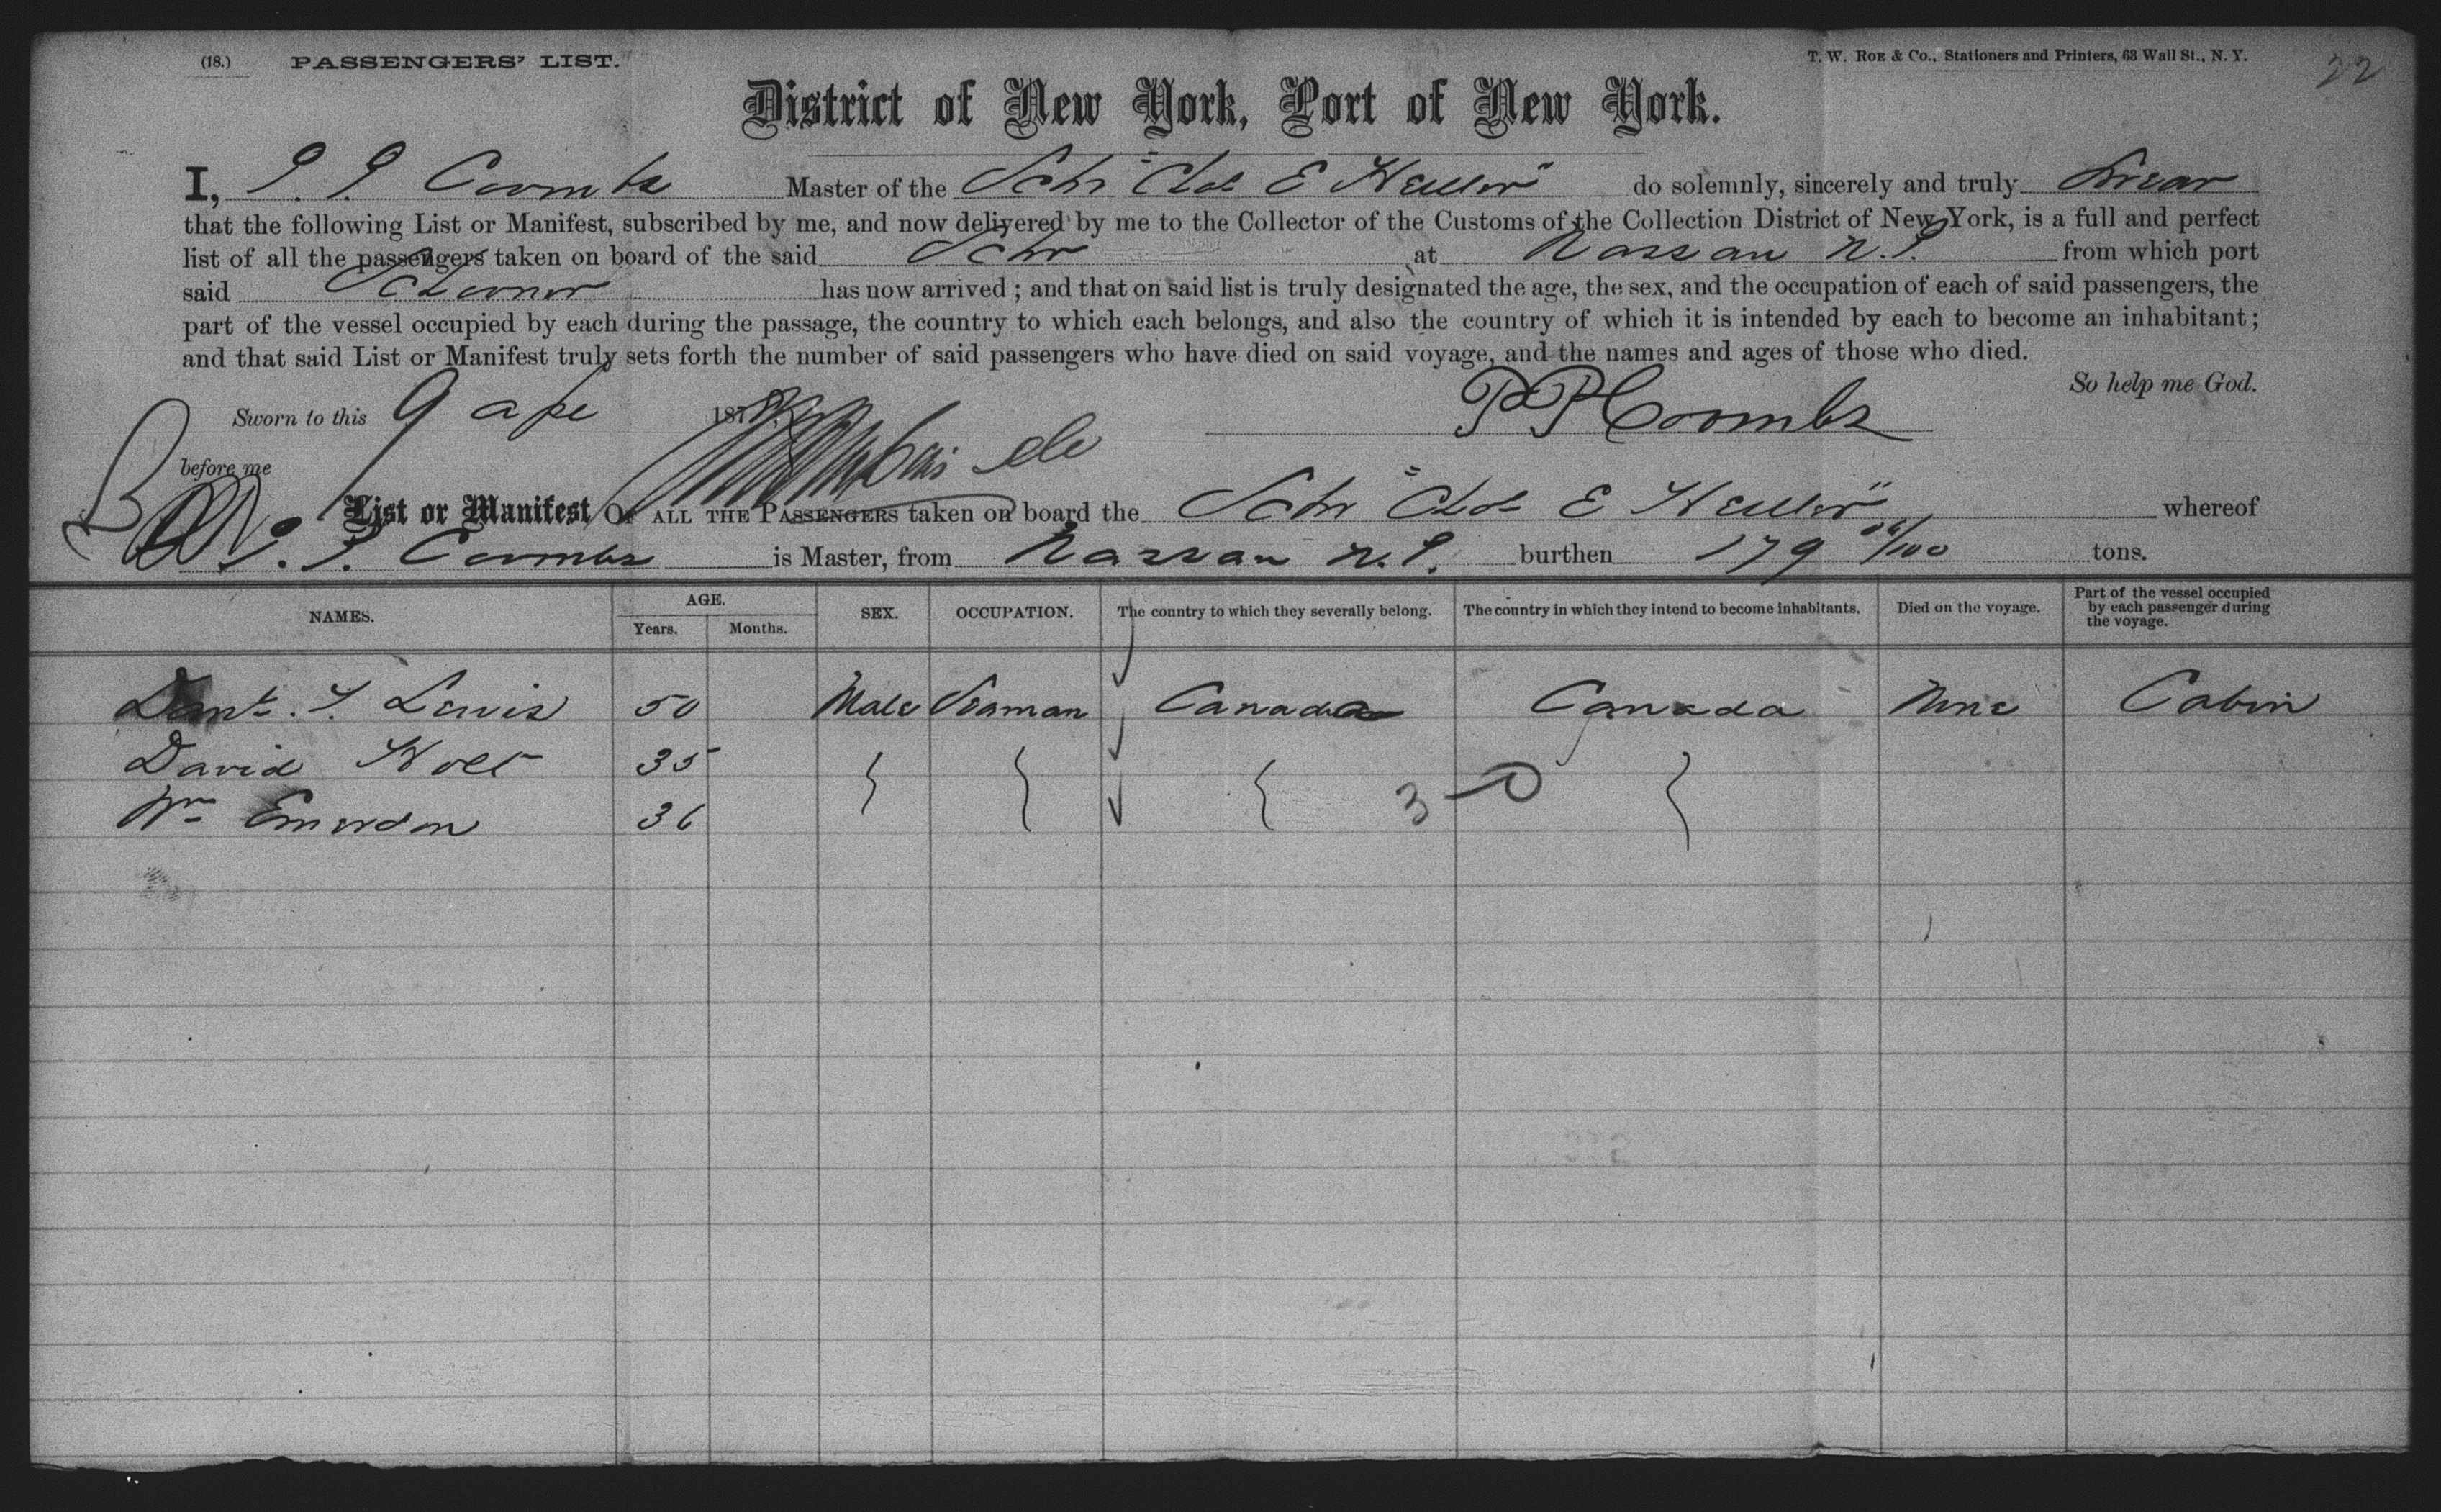 (18.) PASSENGERS' LIST. T. W. ROE & Co., Stationers and Printers, 63 Wall St., N. Y. 22
District of New York, Port of New York.
I, P. P. Coombs Master of the Schr "Chas E Heller" do solemnly, sincerely and truly Swear
that the following List or Manifest, subscribed by me, and now delivered by me to the Collector of the Customs of the Collection District of New York, is a full and perfect
list of all the passengers taken on board of the said Schr at Nassau N.P. from which port
said Schooner has now arrived; and that on said list is truly designated the age, the sex, and the occupation of each of said passengers, the
part of the vessel occupied by each during the passage, the country to which each belongs, and also the country of which it is intended by each to become an inhabitant;
and that said List or Manifest truly sets forth the number of said passengers who have died on said voyage, and the names and ages of those who died.
So help me God.
Sworn to this 9 187 PP Coombs
before me
List or Manifest OF ALL THE PASSENGERS taken on board the Schr "Chas E Heller" whereof
P. P. Coombs is Master, from Nassau N.P. burthen 179 /100 tons.
NAMES. AGE. Years. Months. SEX. OCCUPATION. The country to which they severally belong. The country in which they intend to become inhabitants. Died on the voyage. Part of the vessel occupied by each passenger during the voyage.
Lewis 50 Male Seaman Canada Canada None Cabin
David Holt 35
Wm 36 3